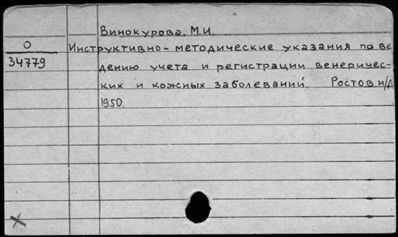 Винокурова, М.И.
О
34779
Инструктивно-методические указания по ве
дению учета и регистрации венеричес-
ких и кожных заболеваний. Ростов н/Д
1950.